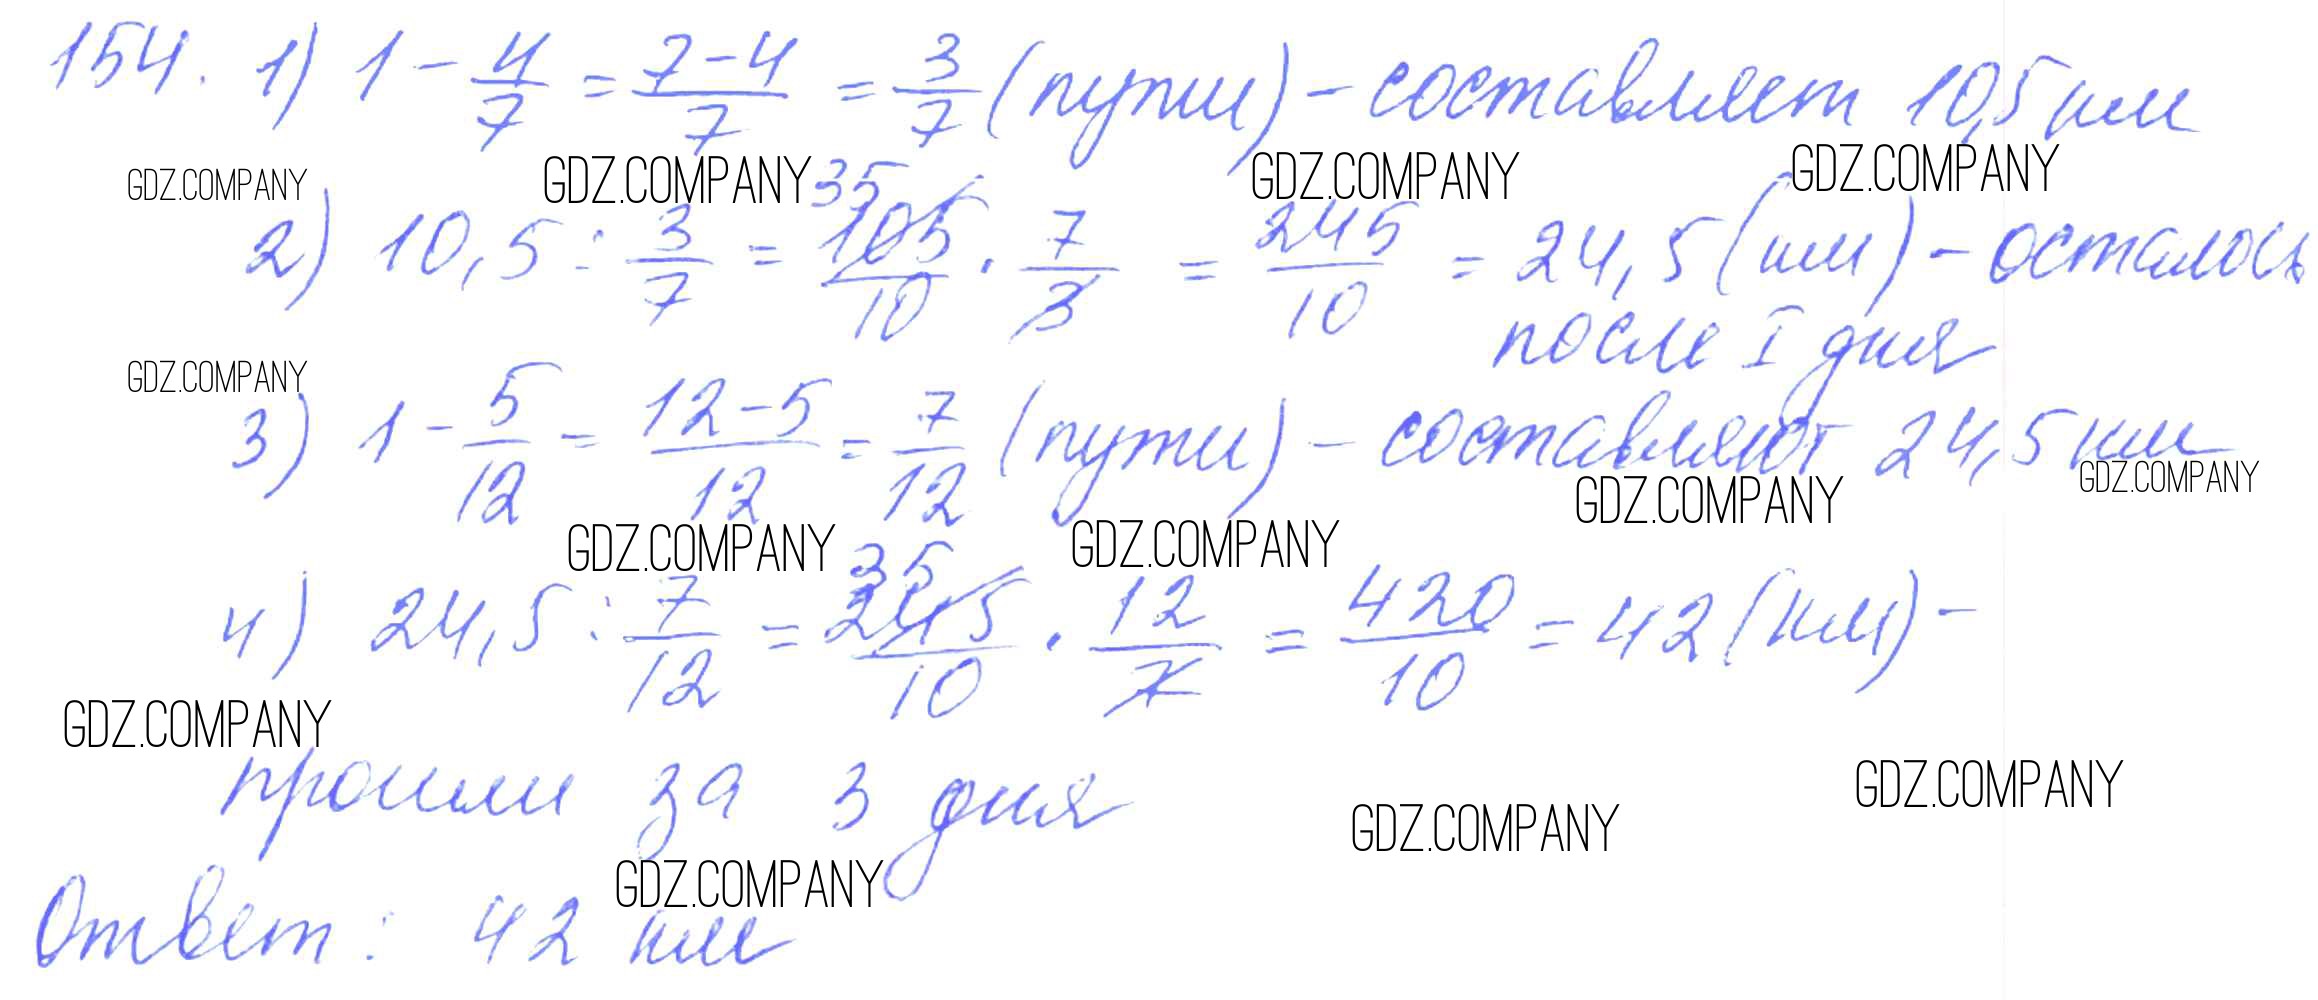 154. 1) 1 - 4/7 = 7-4/7 = 3/7 (пути) - составляет 10,5 км
GDZ.COMPANY GDZ.COMPANY GDZ.COMPANY GDZ.COMPANY
2) 10,5 : 3/7 = 35 105/10 · 7/3 = 245/10 = 24,5 (км) - осталось
после I дня
GDZ.COMPANY
3) 1 - 5/12 = 12-5/12 = 7/12 (пути) - составляют 24,5 км
GDZ.COMPANY GDZ.COMPANY GDZ.COMPANY GDZ.COMPANY
4) 24,5 : 7/12 = 35 245/10 · 12/7 = 420/10 = 42 (км) -
GDZ.COMPANY
прошли за 3 дня
GDZ.COMPANY GDZ.COMPANY
GDZ.COMPANY
Ответ: 42 км